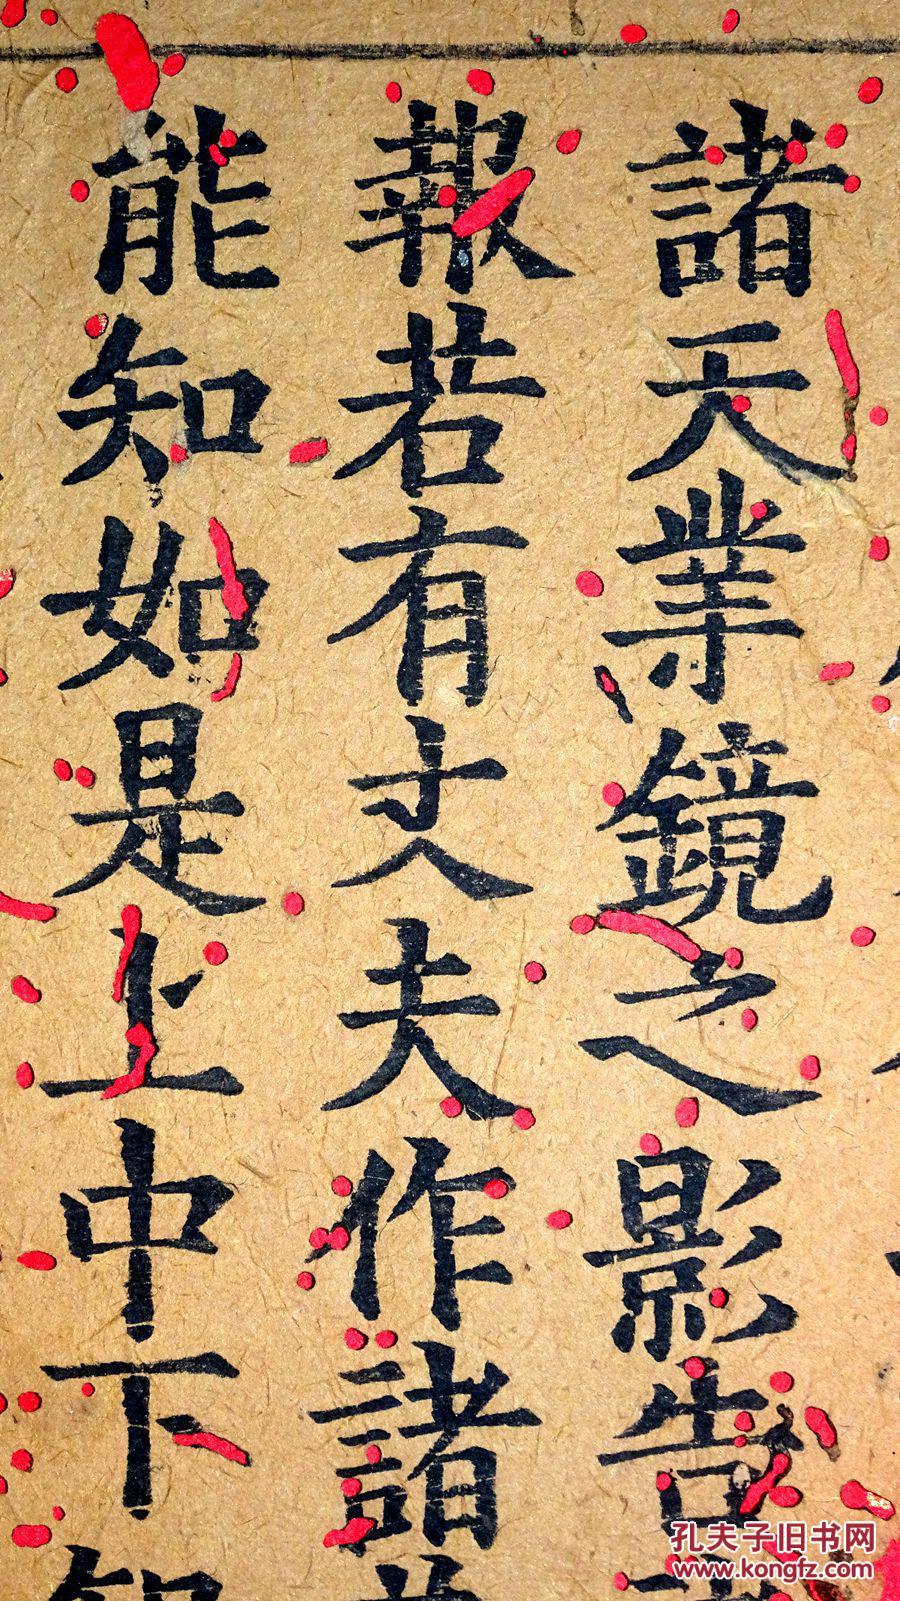 諸天業鏡之影告
報若有丈夫作諸
能知如是上中下
孔夫子旧书网
www.kongfz.com